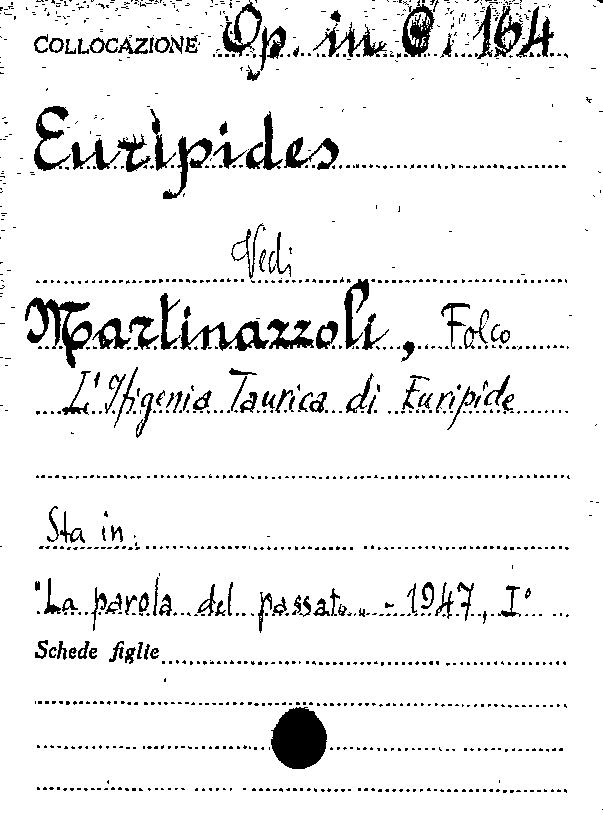 COLLOCAZIONE Op. in C. 164
Euripides
Vedi
Martinazzoli, Folco
L'Ifigenia Taurica di Euripide
Sta in:
"La parola del passato" - 1947, I°
Schede figlie